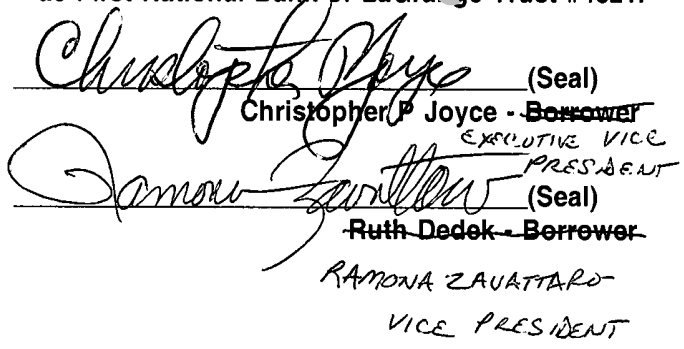 Christopher P Joyce (Seal)
Christopher P Joyce - Borrower
EXECUTIVE VICE
PRESIDENT
Ramona Zavattaro (Seal)
Ruth Dedek - Borrower
RAMONA ZAVATTARO
VICE PRESIDENT